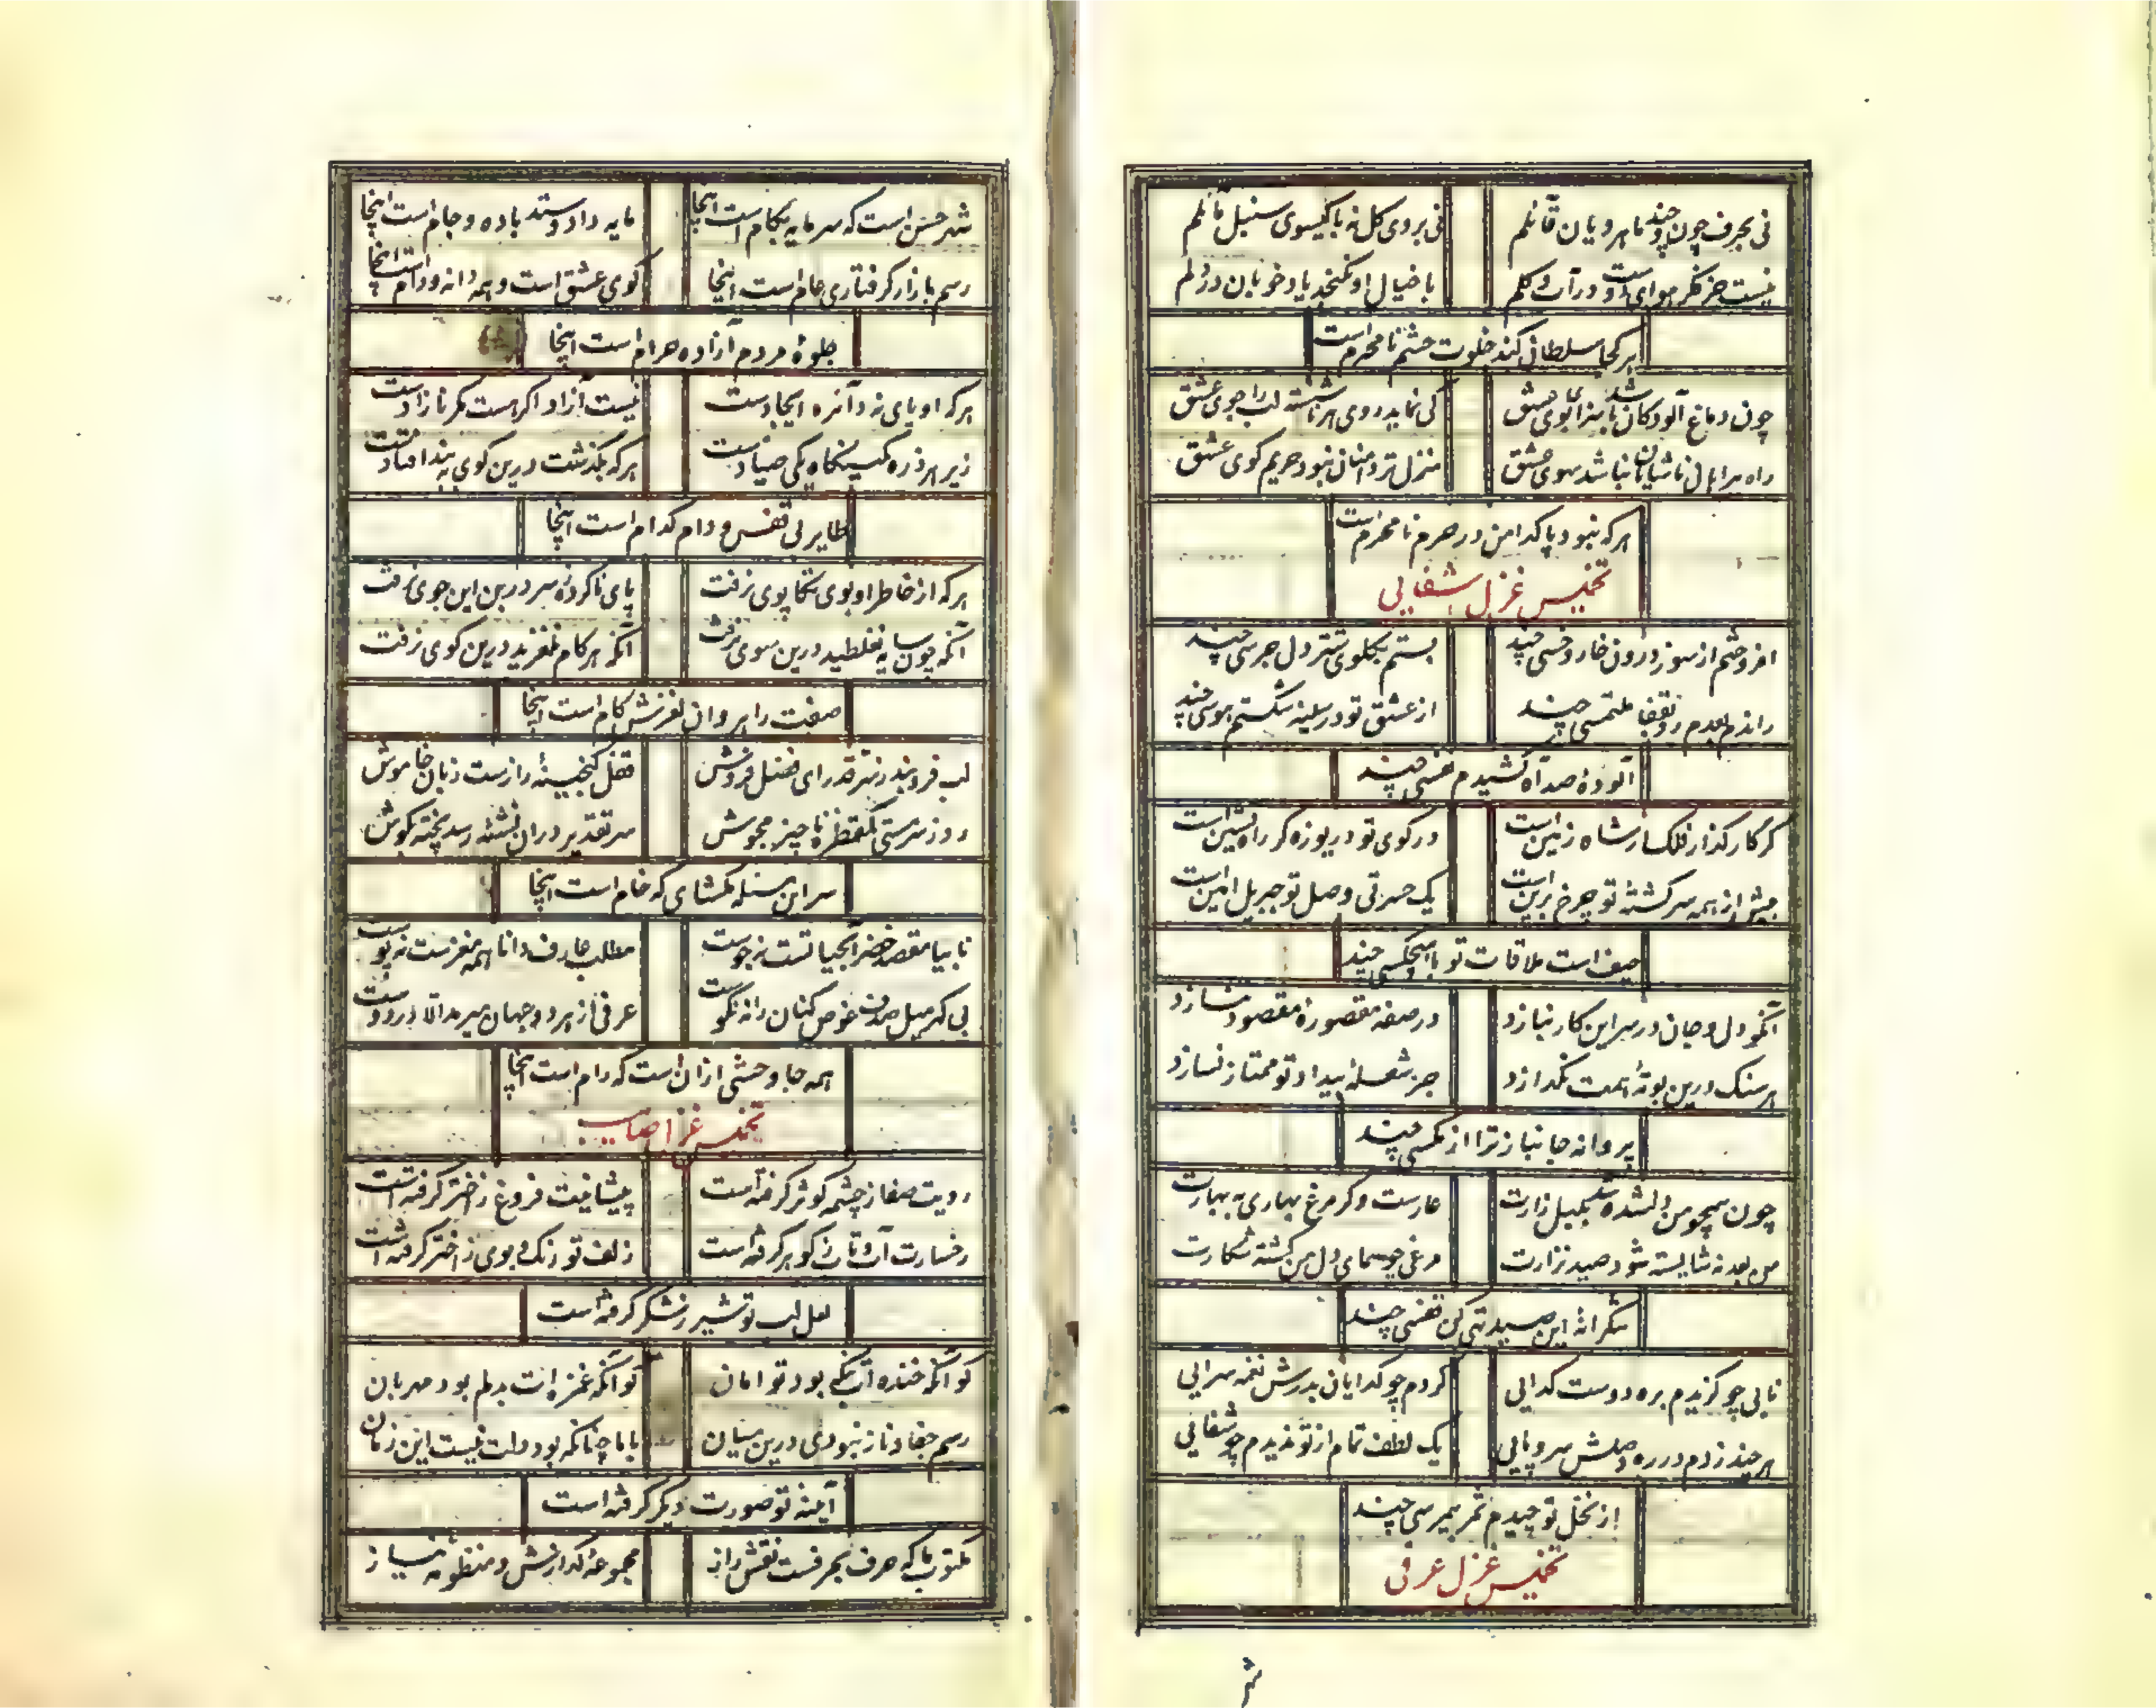 نی بحرف چون و چند ماهرویان قائلم
نی بروی کل نه با کیسوی سنبل مائلم
نیست جز فکر هوای دوست در آب و کلم
با خیال او نکنجد یاد خوبان در دلم
هر کجا سلطانی کند خلوت چشم نامحرم است
چون دماغ آلودکان باشد سزای بوی عشق
کی نماید روی هر ناشسته لب را جوی عشق
منزل تر دامنان نبود حریم کوی عشق
هر که نبود پاکدامن در حرم نامحرم است
تخمیس غزل شفایی
افروختم از سوز درون خار و خسی چند
بستم بکلوی شتر دل جرسی چند
ملتمسی چند
از عشق تو در سینه شکستم هوسی چند
آلودهٔ صد آه کشیدم نفسی چند
کر کارکذار فلک ار شاه زمین است
در کوی تو دریوزه کر راه نشین است
بیش از همه سرکشتهٔ تو چرخ برین است
یک حسرتی وصل تو جبریل امین است
حیف است ملاقات تو با هیچکسی چند
آنکو دل و جان در سر این کار نبازد
در صفهٔ مقصورهٔ مقصود نسازد
هر سنک درین بوتهٔ همت نکدازد
جز شعلهٔ بیداد تو ممتاز نسازد
پروانه جانباز ترا از مکسی چند
چون همچو من دلشده شد بلبل زارت
عارست دکر مرغ بهاری به بهارت
من بعد نه شایسته شود صید نزارت
مرغی چو همای دل من کشته شکارت
شکرانهٔ این صید تهی کن قفسی چند
نابی چو کزیدم بره دوست کدایی
کردم چو کدایان بدرش نغمه سرایی
هر چند زدم در ره وصلش سر و پایی
یک لطف تمام از تو ندیدم چو شفایی
از نخل تو چیدم ثمر نیم رسی چند
تخمیس غزل عرفی
شهر
شهر حسن است که سرمایه بکام است اینجا
مایه داد و ستد باده و جام است اینجا
رسم بازار کرفتاری عام است اینجا
کوی عشق است و همه دانه و دام است اینجا
جلوهٔ مردم آزاده حرام است اینجا
هر که او پای نه دائره ایجادست
نیست آزاد اکر هست مکر نازادست
زیر هر ذره کمینکاه یکی صیادست
هر که بکذشت درین کوی به بند افتادست
طایر بی قفس و دام کدام است اینجا
هر که از خاطر او بوی تکاپوی نرفت
پای ناکردهٔ سر در بن این جوی نرفت
آنکه چون سایه نغلطید درین سوی نرفت
آنکه هر کام نلغزید درین کوی نرفت
صفت راهروان لغزش کام است اینجا
لب فروبند ز سر قدر ای فضل فروش
قفل کنجینهٔ رازست زبان خاموش
مجوش
سر تقدیر در آن نشئه رسد پخته بکوش
سر این مسئله مکشای که خام است اینجا
نابیا مقصد خضر آبحیاتست نه جوست
مطلب عارف دانا همه مغزست نه پوست
همه جا وحشی ازان است که رام است اینجا
تخمیس غزل صایب
رویت صفا ز چشمه کوثر کرفته است
پیشانیت فروغ ز اختر کرفته است
رخسارت آب و تاب ز کوهر کرفته است
زلف تو رنک و بوی ز اختر کرفته است
لعل لب تو شیر ز شکر کرفته است
کو آنکه خنده ات بکی بود توامان
کو آنکه غمزه ات بدلم بود مهربان
رسم جفا و ناز نبودی درین میان
با ما چنانکه بود دلت نیست این زمان
آیینه تو صورت دیکر کرفته است
مکتوب ما که حرف بحرفست نقش راز
مجموعه کدازش و منظومه نیاز